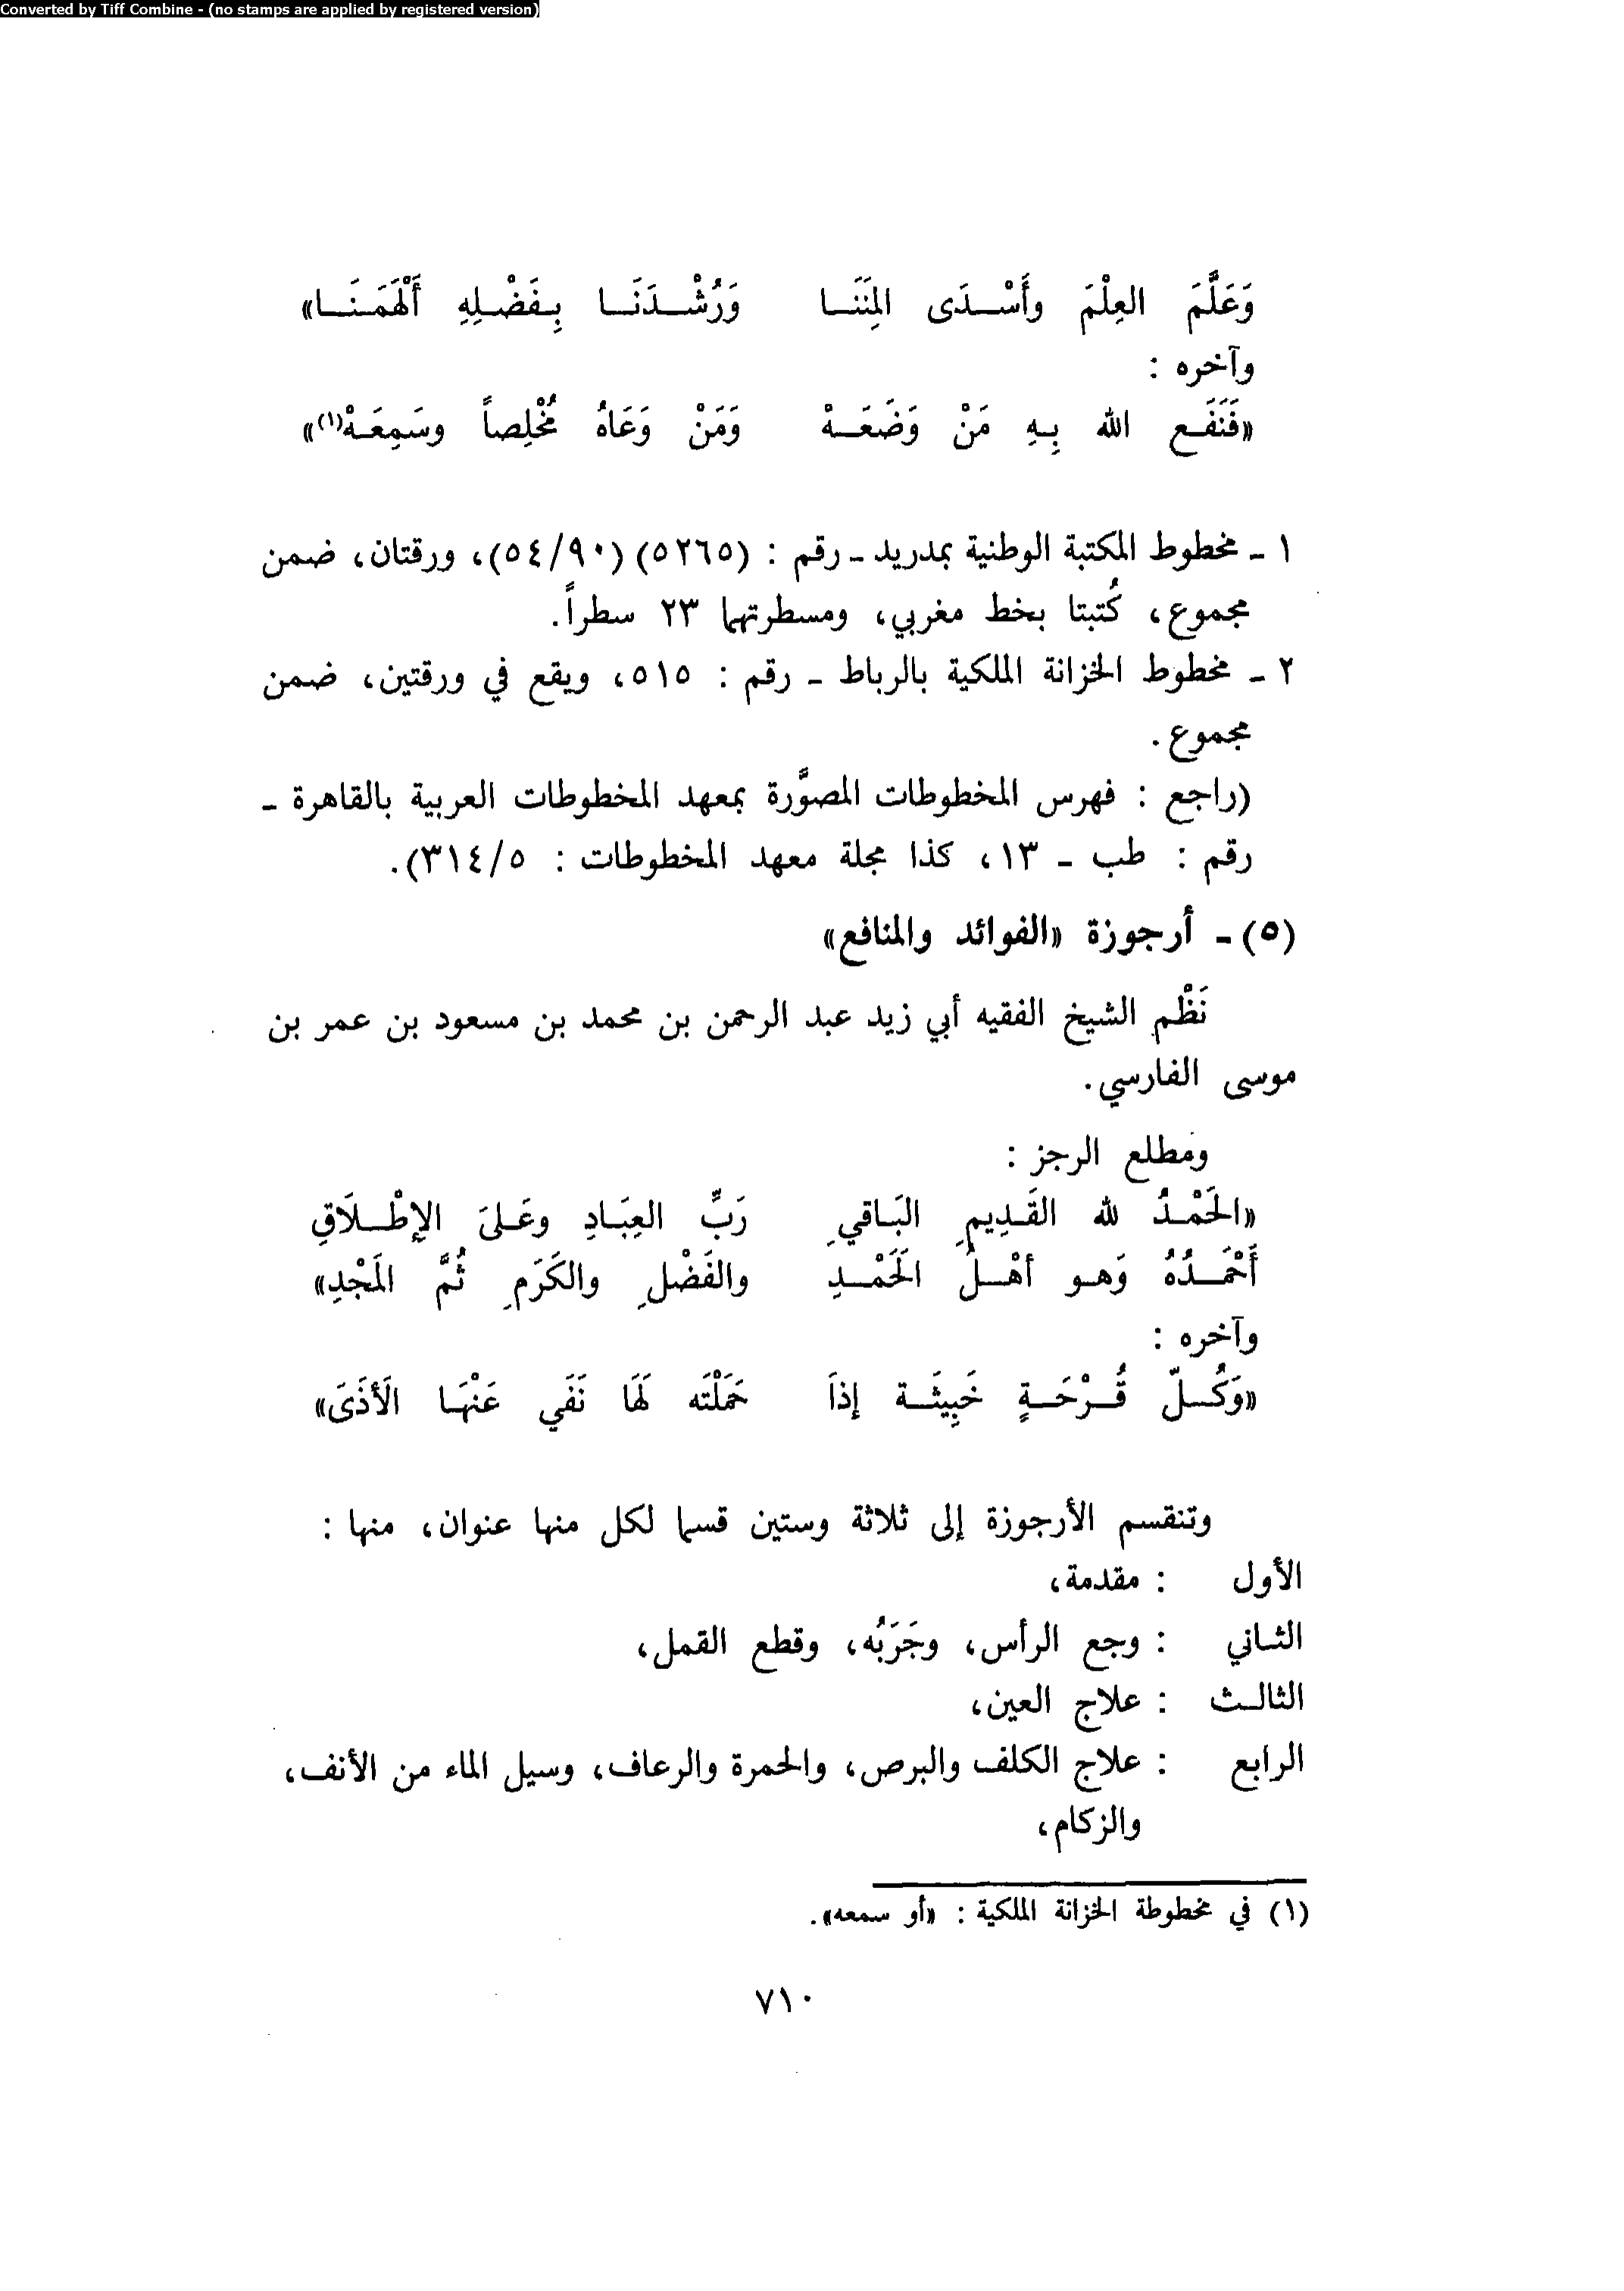 Converted by Tiff Combine - (no stamps are applied by registered version)
وَعَلَّمَ العِلْمَ وأَسْدَى المِنَنَا وَرُشْدَنَا بِفَضْلِهِ أَلْهَمَنَا»
وآخره :
«فَنَفَع الله بِهِ مَنْ وَضَعَهْ وَمَنْ وَعَاهُ مُخْلِصاً وسَمِعَهْ(١)»
١ - مخطوط المكتبة الوطنية بمدريد - رقم : (٥٢٦٥) (٥٤/٩٠)، ورقتان، ضمن
مجموع، كُتبتا بخط مغربي، ومسطرتهما ٢٣ سطراً.
٢ - مخطوط الخزانة الملكية بالرباط - رقم : ٥١٥، ويقع في ورقتين، ضمن
مجموع.
(راجع : فهرس المخطوطات المصوَّرة بمعهد المخطوطات العربية بالقاهرة -
رقم : طب - ١٣، كذا مجلة معهد المخطوطات : ٣١٤/٥).
(٥) - أرجوزة «الفوائد والمنافع»
نَظْم الشيخ الفقيه أبي زيد عبد الرحمن بن محمد بن مسعود بن عمر بن
موسى الفارسي.
ومطلع الرجز :
«الحَمْدُ لله القَدِيمِ البَاقيِ رَبِّ العِبَادِ وعَلىَ الإطْلَاقِ
أَحْمَدُهُ وَهو أهْلُ الَحَمْدِ والفَضْلِ والكَرَمِ ثُمَّ المَجْدِ»
وآخره :
«وَكُلّ قُرْحَةٍ خَبِيثَة إذاَ حَمَلْتَه لَهَا نَفَي عَنْهَا الَأذَىَ»
وتنقسم الأرجوزة إلى ثلاثة وستين قسما لكل منها عنوان، منها :
الأول : مقدمة،
الثاني : وجع الرأس، وجَرَبُه، وقطع القمل،
الثالث : علاج العين،
الرابع : علاج الكلف والبرص، والحمرة والرعاف، وسيل الماء من الأنف،
والزكام،
(١) في مخطوطة الخزانة الملكية : «أو سمعه».
٧١٠